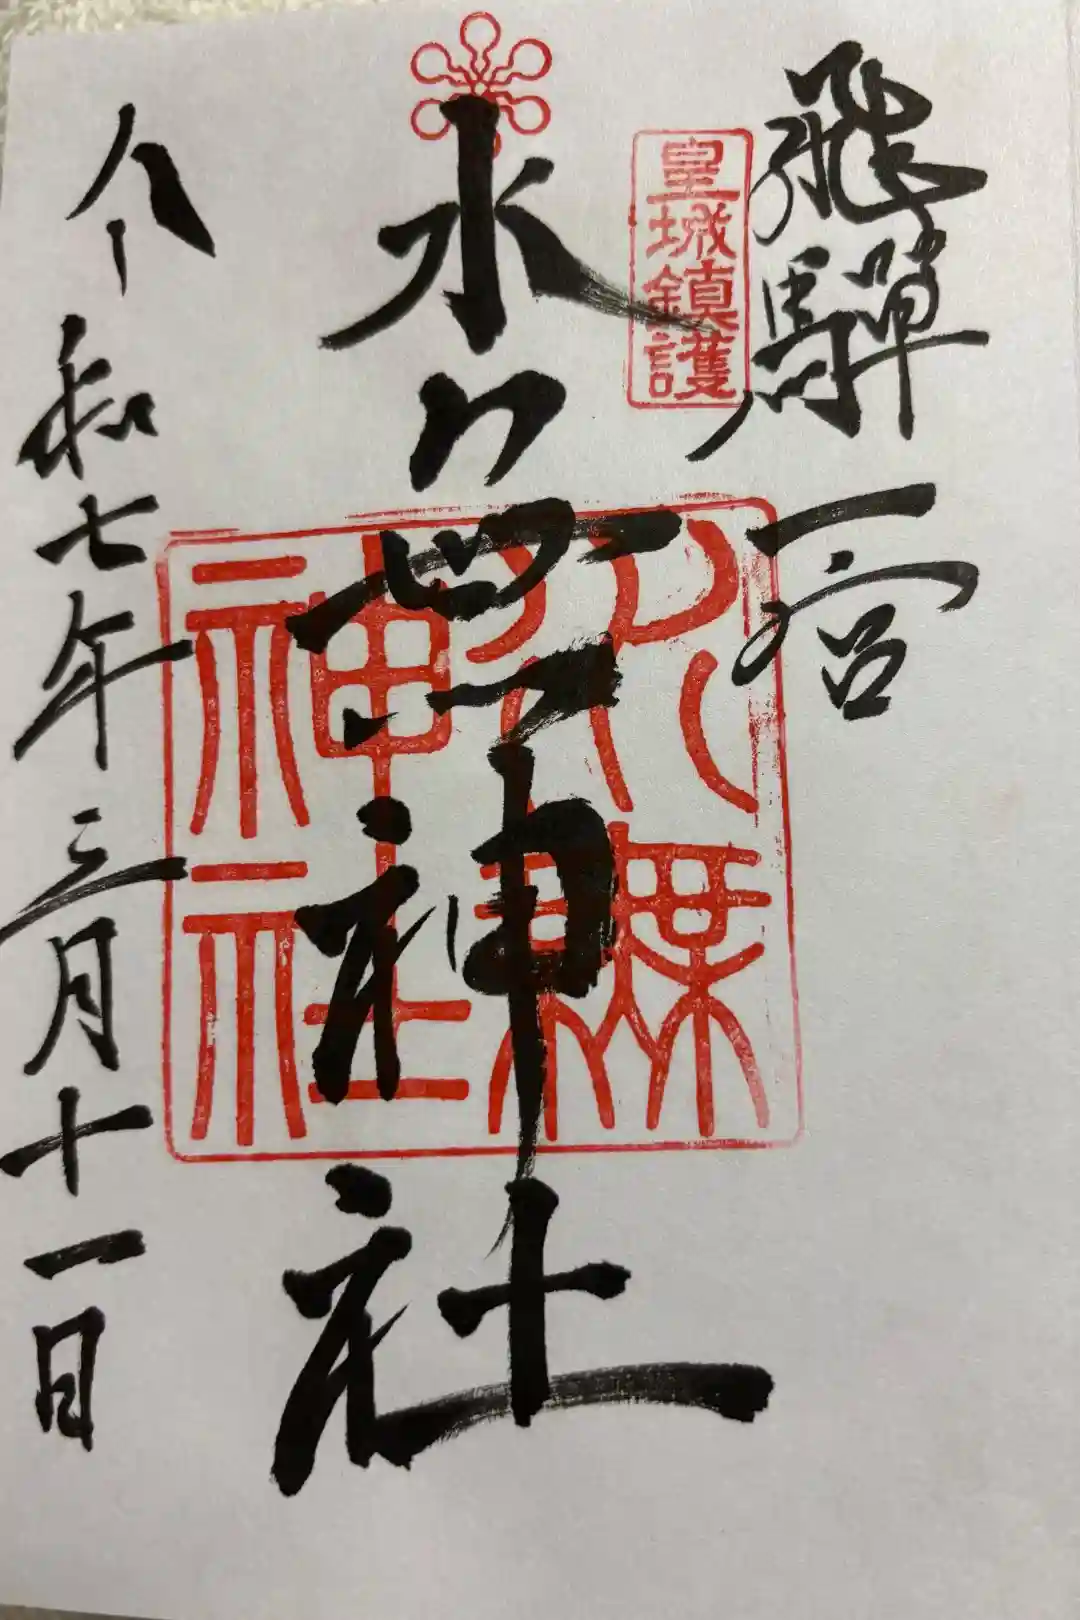 飛騨一宮
皇城鎮護
水無神社
水無神社
令和七年三月十一日